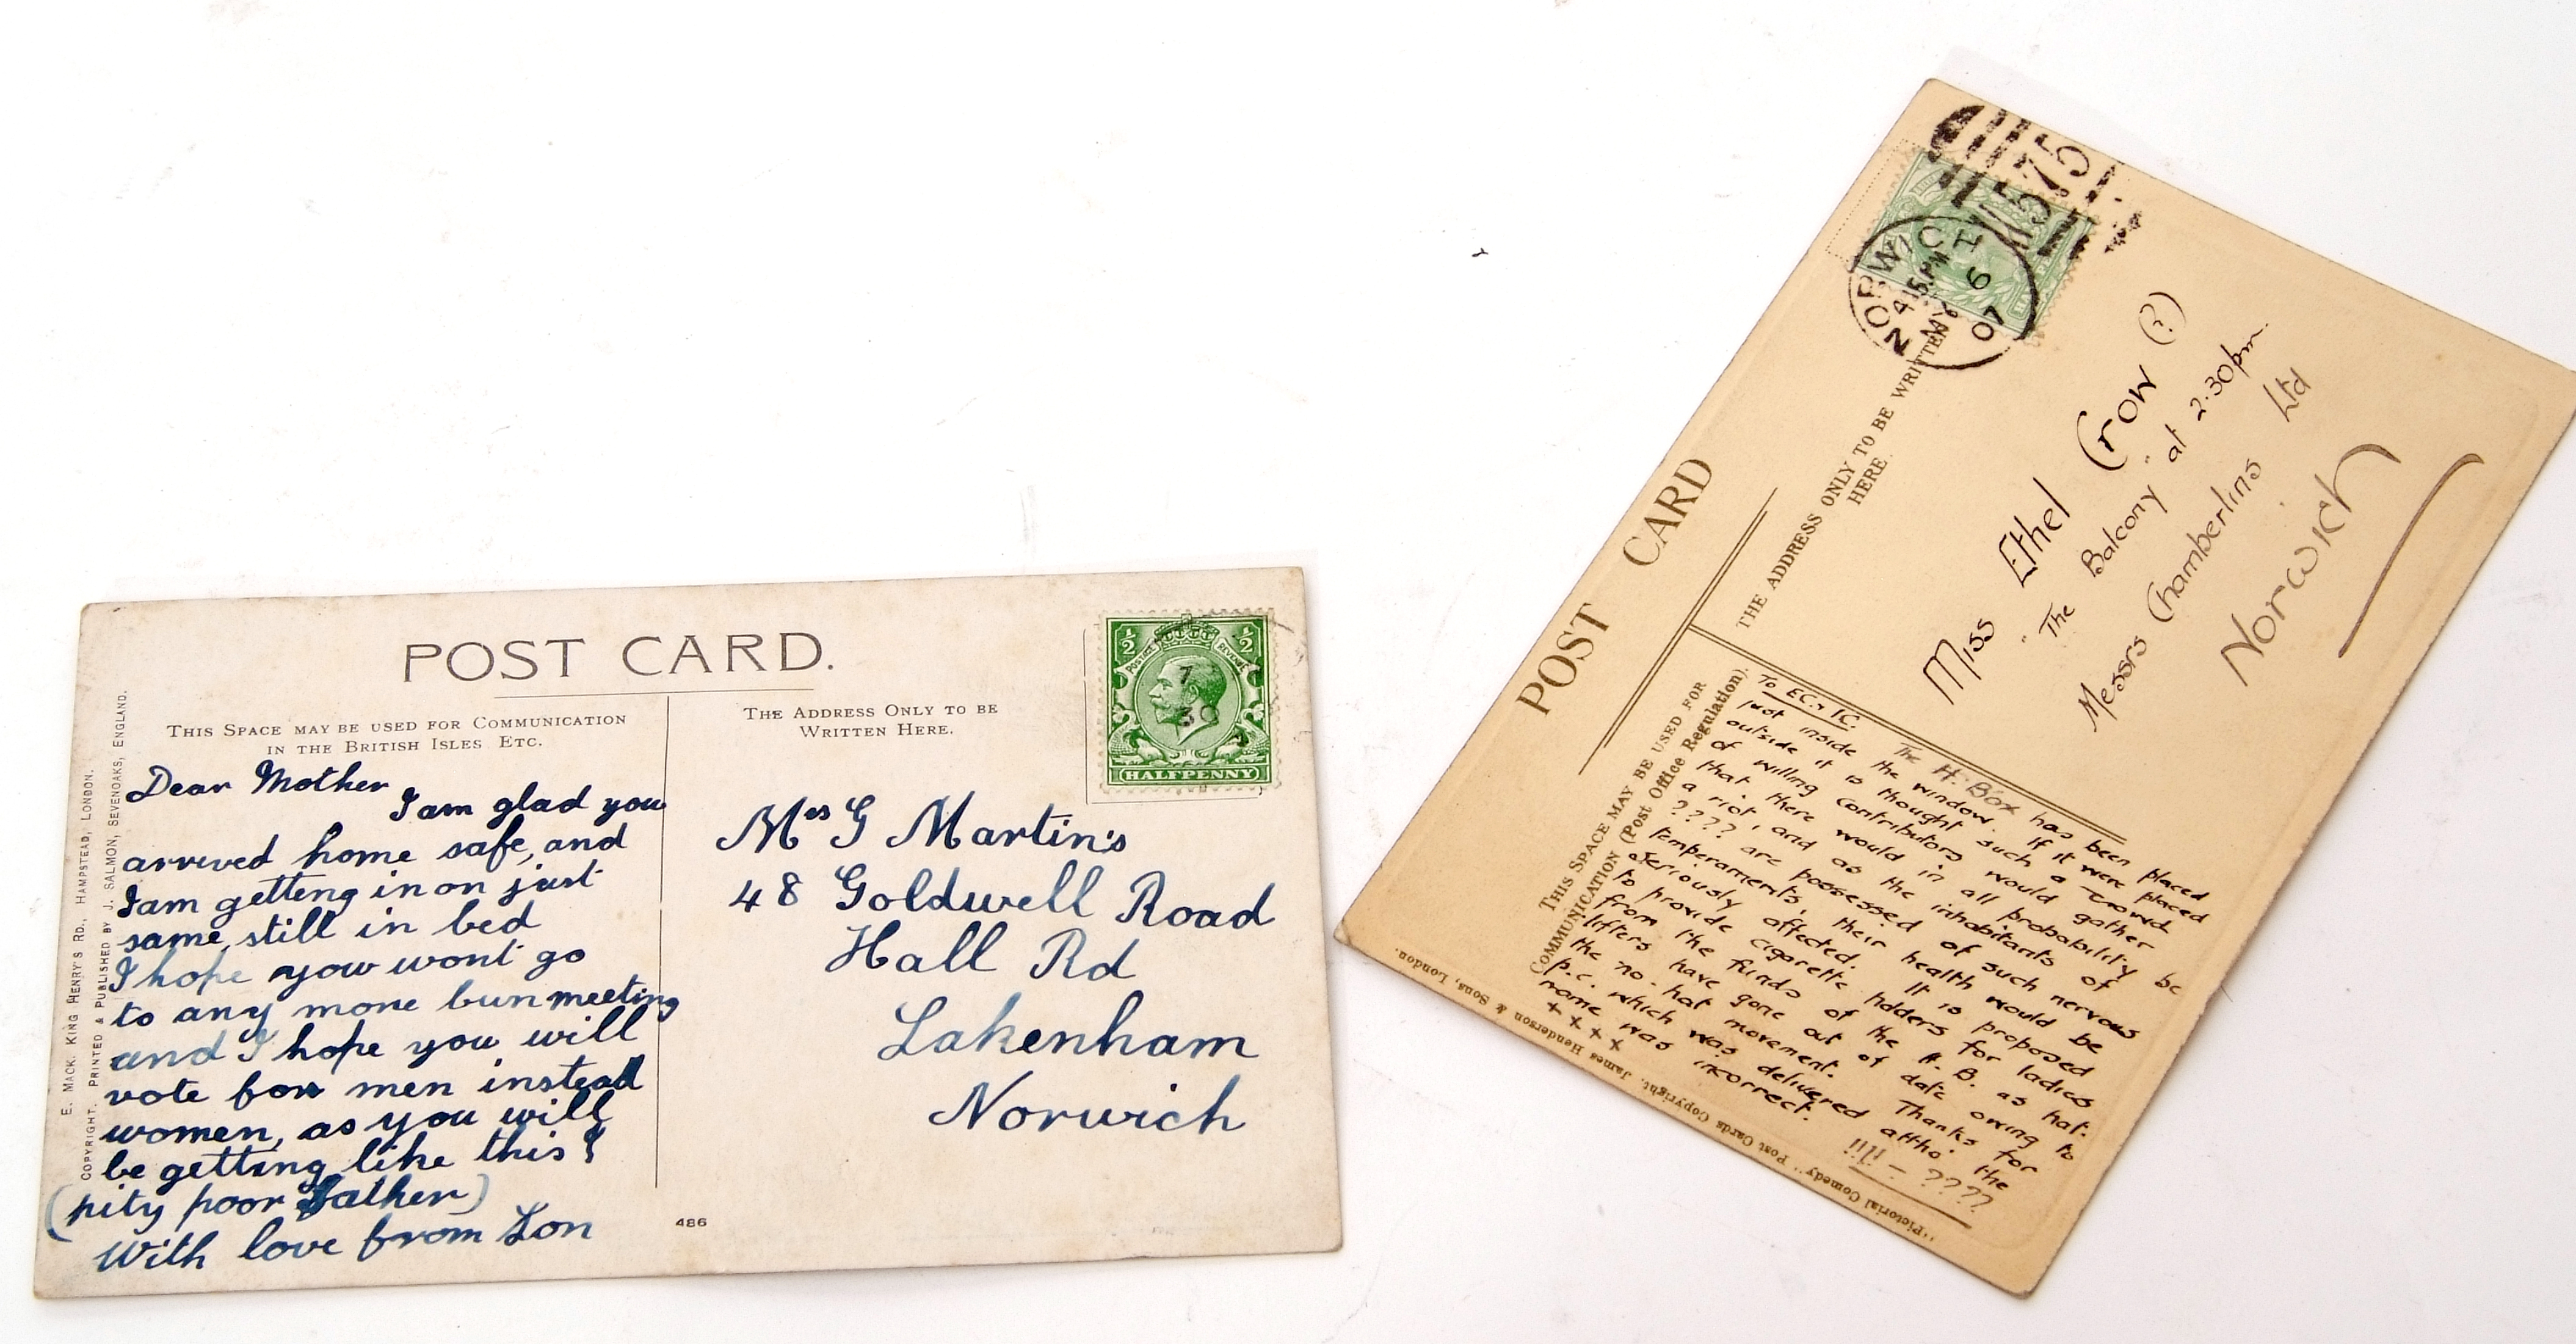 POST CARD.
THIS SPACE MAY BE USED FOR COMMUNICATION
IN THE BRITISH ISLES ETC.
THE ADDRESS ONLY TO BE
WRITTEN HERE.
½ ½
POSTAGE REVENUE
HALFPENNY
E. MACK. KING HENRY'S RD., HAMPSTEAD, LONDON.
COPYRIGHT. PRINTED & PUBLISHED BY J. SALMON, SEVENOAKS, ENGLAND.
Dear Mother
I am glad you
arrived home safe, and
I am getting in on just
same, still in bed
I hope you wont go
to any more bun meeting
and I hope you will
vote for men instead
women, as you will
be getting like this
(pity poor Father)
With love from Lon
Mrs G Martin's
48 Goldwell Road
Hall Rd
Lakenham
Norwich
486
POST CARD
THE ADDRESS ONLY TO BE WRITTEN
HERE.
THIS SPACE MAY BE USED FOR
COMMUNICATION (Post Office Regulation).
575
NORWIC
4 15 PM
MY 6
07
Miss Ethel Crow (?)
"The Balcony" at 2.30pm.
Messrs Chamberlins Ltd
Norwich
To EC. & IC.
The H. Box has been placed
just inside the window. If it were placed
outside it is thought such a crowd
of willing contributors would gather
that there would in all probability be
a riot, and as the inhabitants of
???? are possessed of such nervous
temperaments, their health would be
seriously affected. It is proposed
to provide cigarette holders for ladies
from the funds of the H. B. as hat-
lifters have gone out of date owing to
the no-hat movement. Thanks for
p.c. which was delivered altho' the
name was incorrect.
x x x x
???? 
"Pictorial Comedy" Post Cards Copyright. James Henderson & Sons, London.